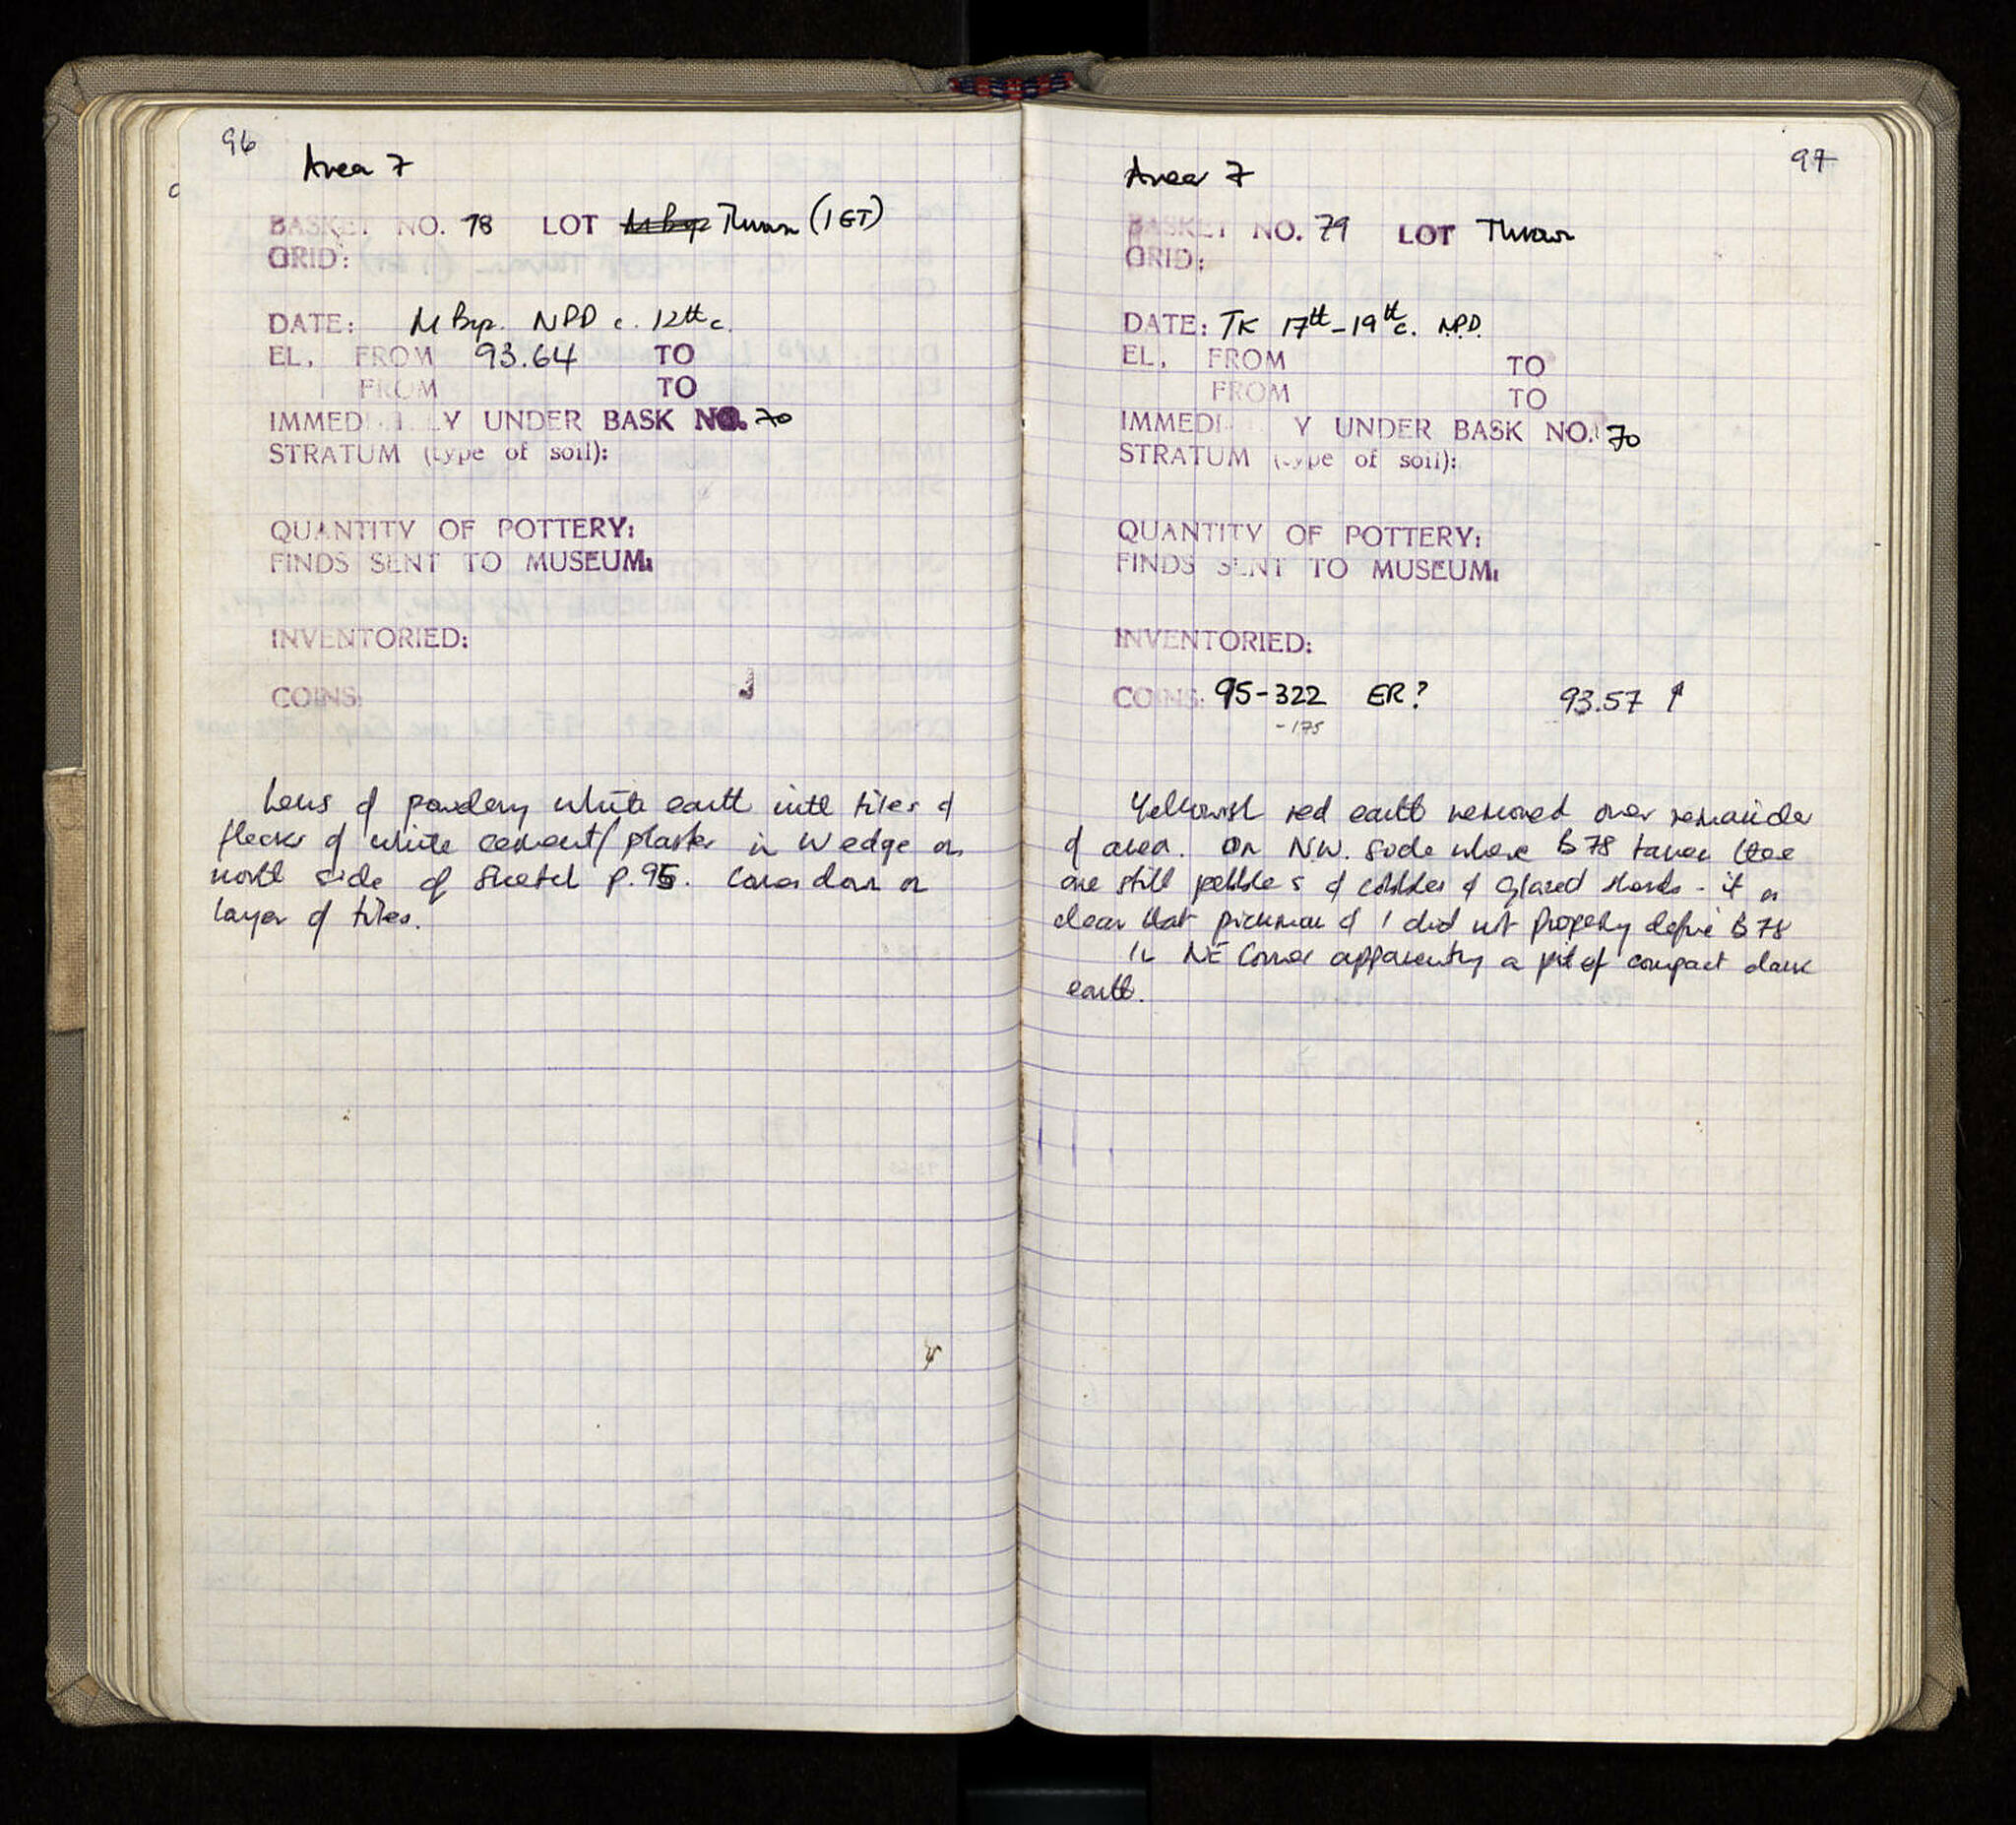 96
Area 7
BASKET NO. 78 LOT M Byz Thrown (1 ET)
GRID:
DATE: M Byz. NPD c. 12th c.
EL, FROM 93.64 TO
FROM TO
IMMED Y UNDER BASK NO. 70
STRATUM (type of soil):
QUANTITY OF POTTERY:
FINDS SENT TO MUSEUM:
INVENTORIED:
COINS:
Lens of powdery white earth with tiles &
flecks of white cement/plaster in wedge on
north side of sketch p. 95. Comes down on
layer of tiles.
97
Area 7
BASKET NO. 79 LOT Thrown
GRID:
DATE: TK 17th-19th c. NPD.
EL, FROM TO
FROM TO
IMMEDI Y UNDER BASK NO. 70
STRATUM (type of soil):
QUANTITY OF POTTERY:
FINDS SENT TO MUSEUM:
INVENTORIED:
COINS: 95-322 ER? 93.57 ↑
-175
Yellowish red earth removed over remainder
of area. On N.W. side where B 78 taken there
are still pebbles & cobbles & glazed sherds - it is
clear that pickman & I did not properly define B 78
In NE Corner apparently a pit of compact dark
earth.